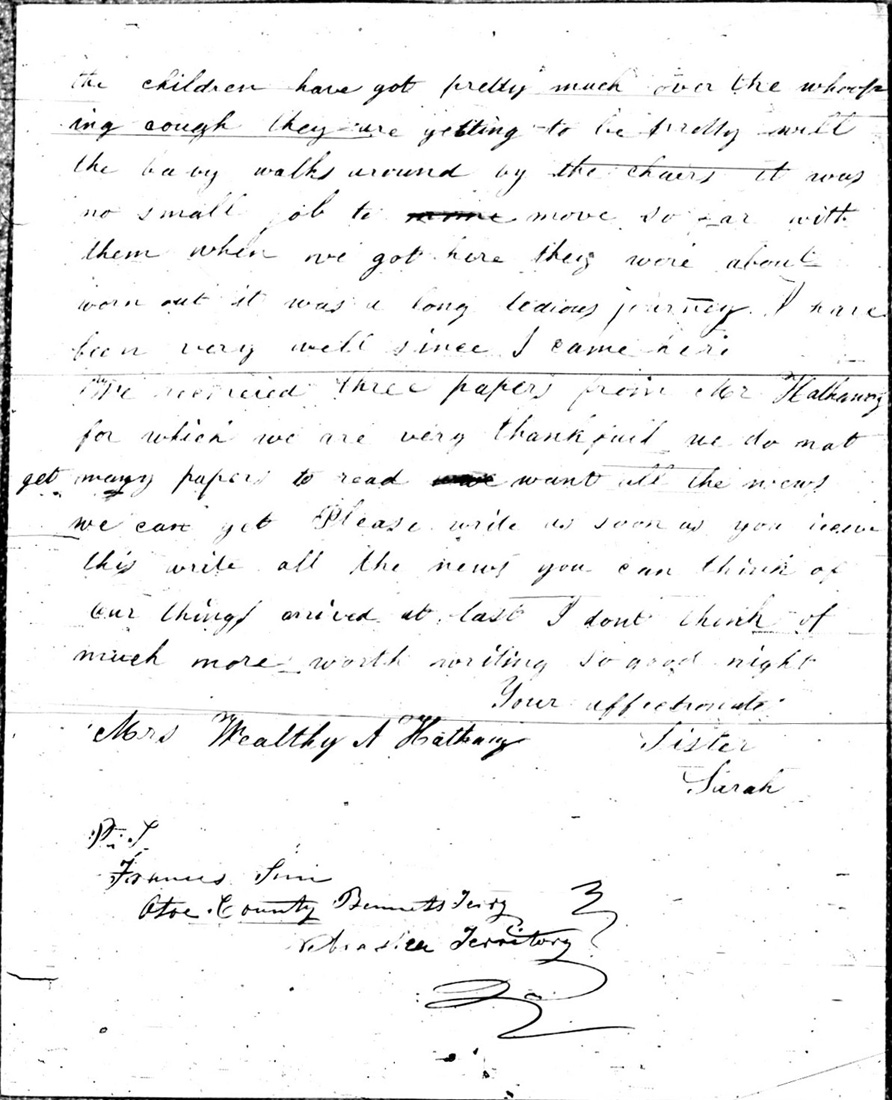 the children have got pretty much over the whoop
ing cough they are getting to be pretty well
the baby walks around by the chairs it was
no small job to move so far with
them when we got here they were about
worn out it was a long tedious journey. I have
been very well since I came here
We received three papers from Mr Hathaway
for which we are very thankful we do not
get many papers to read want all the news
we can get Please write as soon as you
this write all the news you can think of
Our things arrived at last I dont think of
much more worth writing so good night
Your affectionate
Mrs Wealthy A Hathaway Sister
Sarah
P. S
Francis
Otoe County Bennetts Ferry
Nebraska Territory